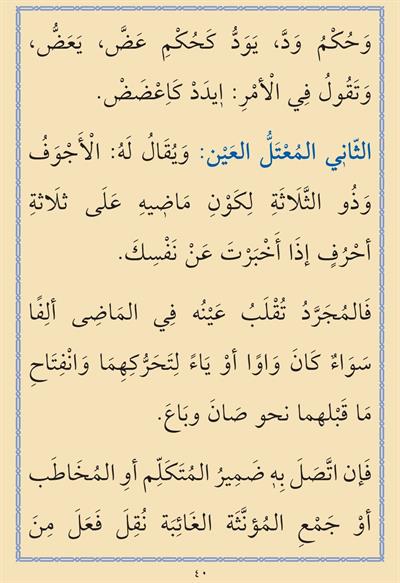 وَحُكْمُ وَدَّ، يَوَدُّ كَحُكْمِ عَضَّ، يَعَضُّ،
وَتَقُولُ فِي الْأَمْرِ: إِيدَدْ كَاِعْضَضْ.
الثّانِي المُعْتَلُّ العَيْن: وَيُقَالُ لَهُ: الْأَجْوَفُ
وَذُو الثَّلَاثَةِ لِكَوْنِ مَاضِيهِ عَلَى ثلَاثةِ
أحْرُفٍ إذَا أَخْبَرْتَ عَنْ نَفْسِكَ.
فَالمُجَرَّدُ تُقْلَبُ عَيْنُه فِي المَاضِى ألِفًا
سَوَاءٌ كَانَ وَاوًا أوْ يَاءً لِتَحَرُّكِهِمَا وَانْفِتَاحِ
مَا قَبْلهما نحو صَانَ وبَاعَ.
فَإن اتَّصَلَ بِهِ ضَمِيرُ المُتَكَلِّم أوِ المُخَاطَب
أوْ جَمْعِ المُؤنَّثَة الغَائِبَة نُقِلَ فَعَلَ مِنَ
٤٠